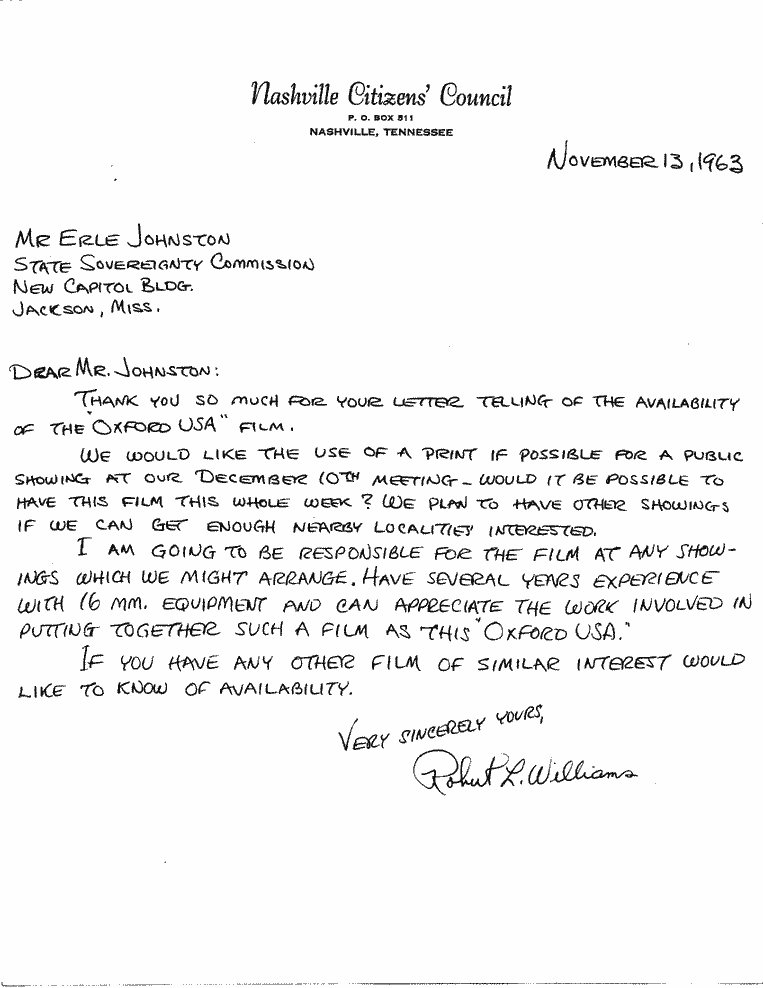 Nashville Citizens' Council
P. O. BOX 811
NASHVILLE, TENNESSEE
NOVEMBER 13, 1963
MR ERLE JOHNSTON
STATE SOVEREIGNTY COMMISSION
NEW CAPITOL BLDG.
JACKSON, MISS.
DEAR MR. JOHNSTON:
THANK YOU SO MUCH FOR YOUR LETTER TELLING OF THE AVAILABILITY
OF THE "OXFORD USA" FILM.
WE WOULD LIKE THE USE OF A PRINT IF POSSIBLE FOR A PUBLIC
SHOWING AT OUR DECEMBER 10TH MEETING - WOULD IT BE POSSIBLE TO
HAVE THIS FILM THIS WHOLE WEEK? WE PLAN TO HAVE OTHER SHOWINGS
IF WE CAN GET ENOUGH NEARBY LOCALITIES INTERESTED.
I AM GOING TO BE RESPONSIBLE FOR THE FILM AT ANY SHOW-
INGS WHICH WE MIGHT ARRANGE. HAVE SEVERAL YEARS EXPERIENCE
WITH 16 MM. EQUIPMENT AND CAN APPRECIATE THE WORK INVOLVED IN
PUTTING TOGETHER SUCH A FILM AS THIS "OXFORD USA."
IF YOU HAVE ANY OTHER FILM OF SIMILAR INTEREST WOULD
LIKE TO KNOW OF AVAILABILITY.
VERY SINCERELY YOURS,
Robert L. Williams